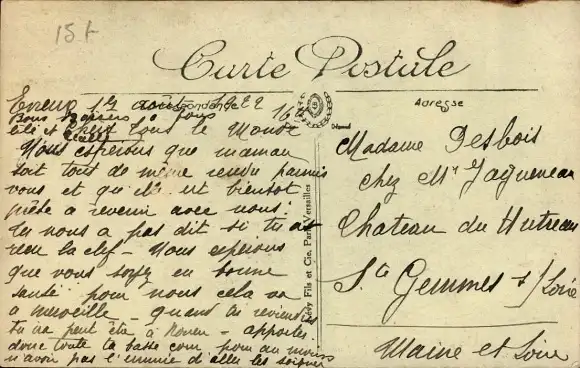 15f
Carte Postale
Correspondance
Adresse
1er août 1922
Bons baisers à tous
lili et tous le Monde
Nous esperons que maman
soit tout de même rendu parmis
vous et qu'elle est bientot
prête a revenir avec nous.
tu nous a pas dit si tu as
recu la clef - Nous esperons
que vous soyez en bonne
santé pour nous cela va
a merveille - quand tu reviendras
tu ira peut être a Rouen - apportes
donc toute ta basse cour pour au moins
n'avoir pas l'ennuie d'aller les soigner
Fils et Cie, Paris-Versailles
Madame Desbois
chez Mr Jagueneau
Chateau du Hutreau
Ste Gemmes s/Loire
Maine et Loire